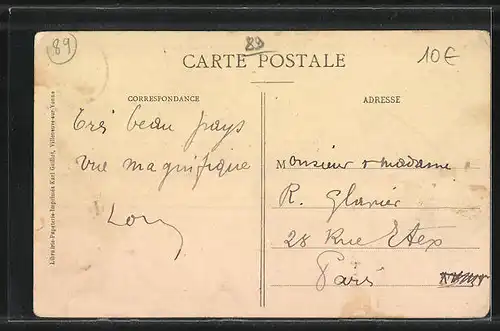 89
89
10€
CARTE POSTALE
CORRESPONDANCE
ADRESSE
Très beau pays
vue magnifique
Monsieur & Madame
R.
28 Rue Etex
Paris
Librairie-Papeterie-Imprimerie Karl Guillot, Villeneuve-sur-Yonne